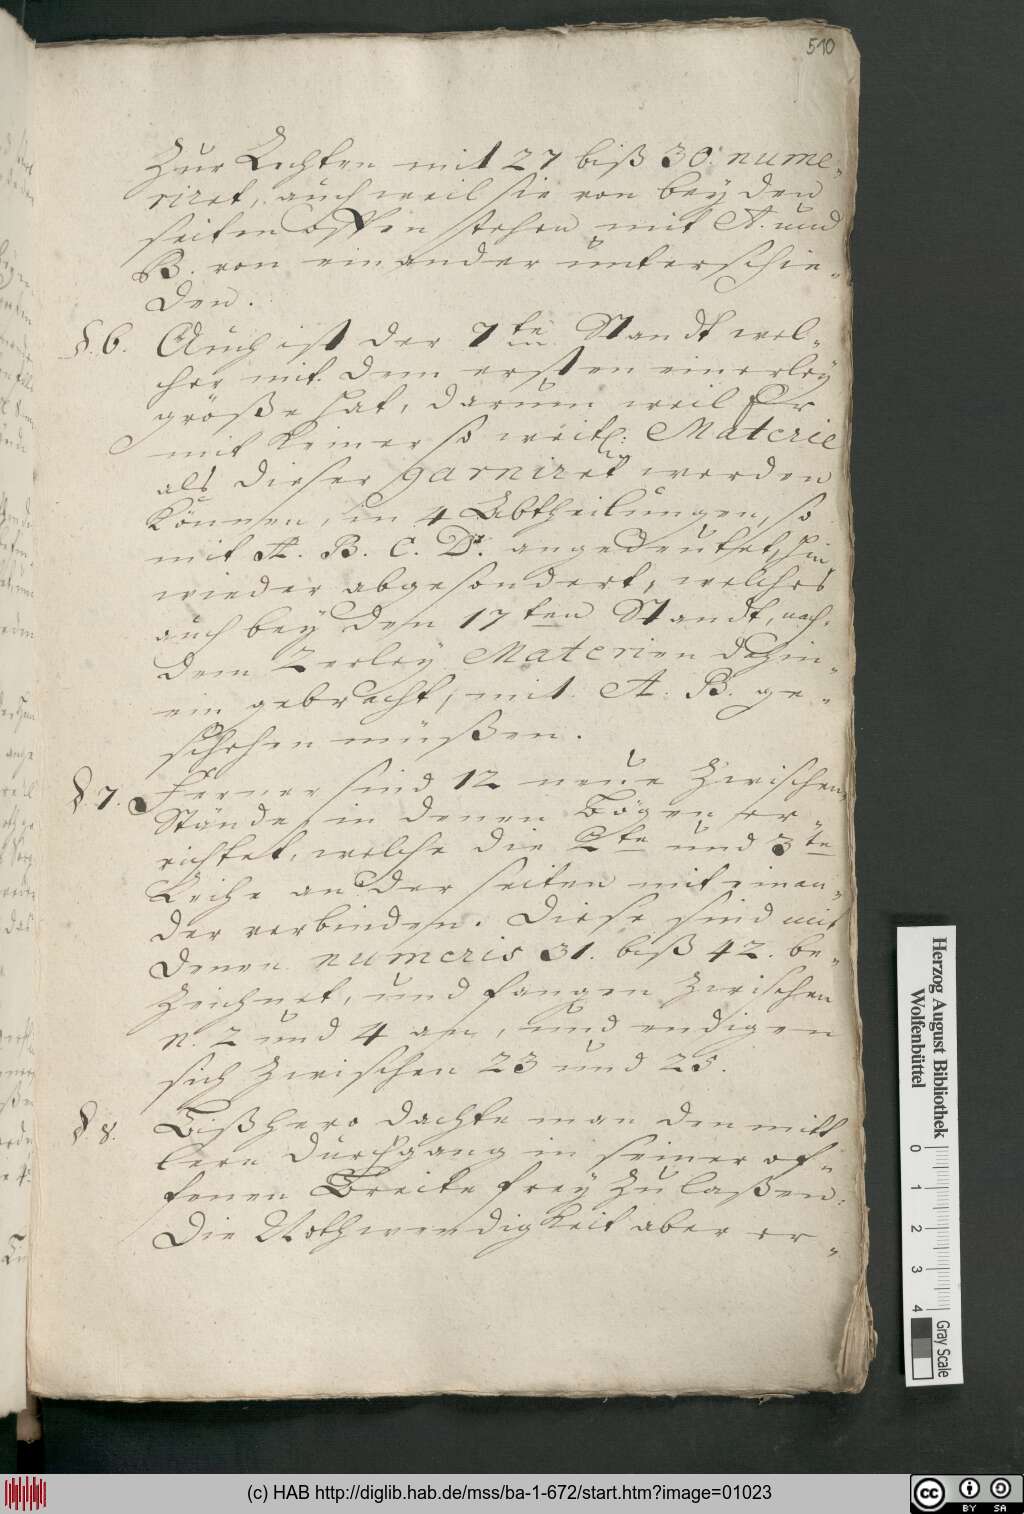 510
Zur Rechten mit 27 biß 30. nume-
riret, auch weil sie von beyden
seiten offen stehen mit A. und
B. von einander unterschie-
den.
§. 6. Auch ist der 7te Standt wel-
cher mit dem ersten einerley
größe hat, darum weil Er
mit keiner so weitl: Materie
als dieser garniret werden
können, in 4 Abtheilungen, so
mit A. B. C. D. angedeutet, hin
wieder abgesondert, welches
auch bey den 17ten Standt, nach-
dem 2erley Materien dahin-
ein gebracht, mit A. B. ge-
schehen müßen.
§. 7. Ferner sind 12 neue Zwischen-
Stände, in denen Bögen er-
richtet, welche die 2te und 3te
Reihe an der seiten mit einan-
der verbinden. Diese sind mit
denen numeris 31. biß 42. be-
zeichnet, und fangen zwischen
N. 2 und 4 an, und endigen
sich zwischen 23 und 25.
§ 8. Bißhero dachte man den mitt
lern durchgang in seiner of-
fenen Breite frey zu laßen.
Die Nothwendigkeit aber er-
Herzog August Bibliothek
Wolfenbüttel
0 1 2 3 4
Gray Scale
(c) HAB http://diglib.hab.de/mss/ba-1-672/start.htm?image=01023
cc BY SA